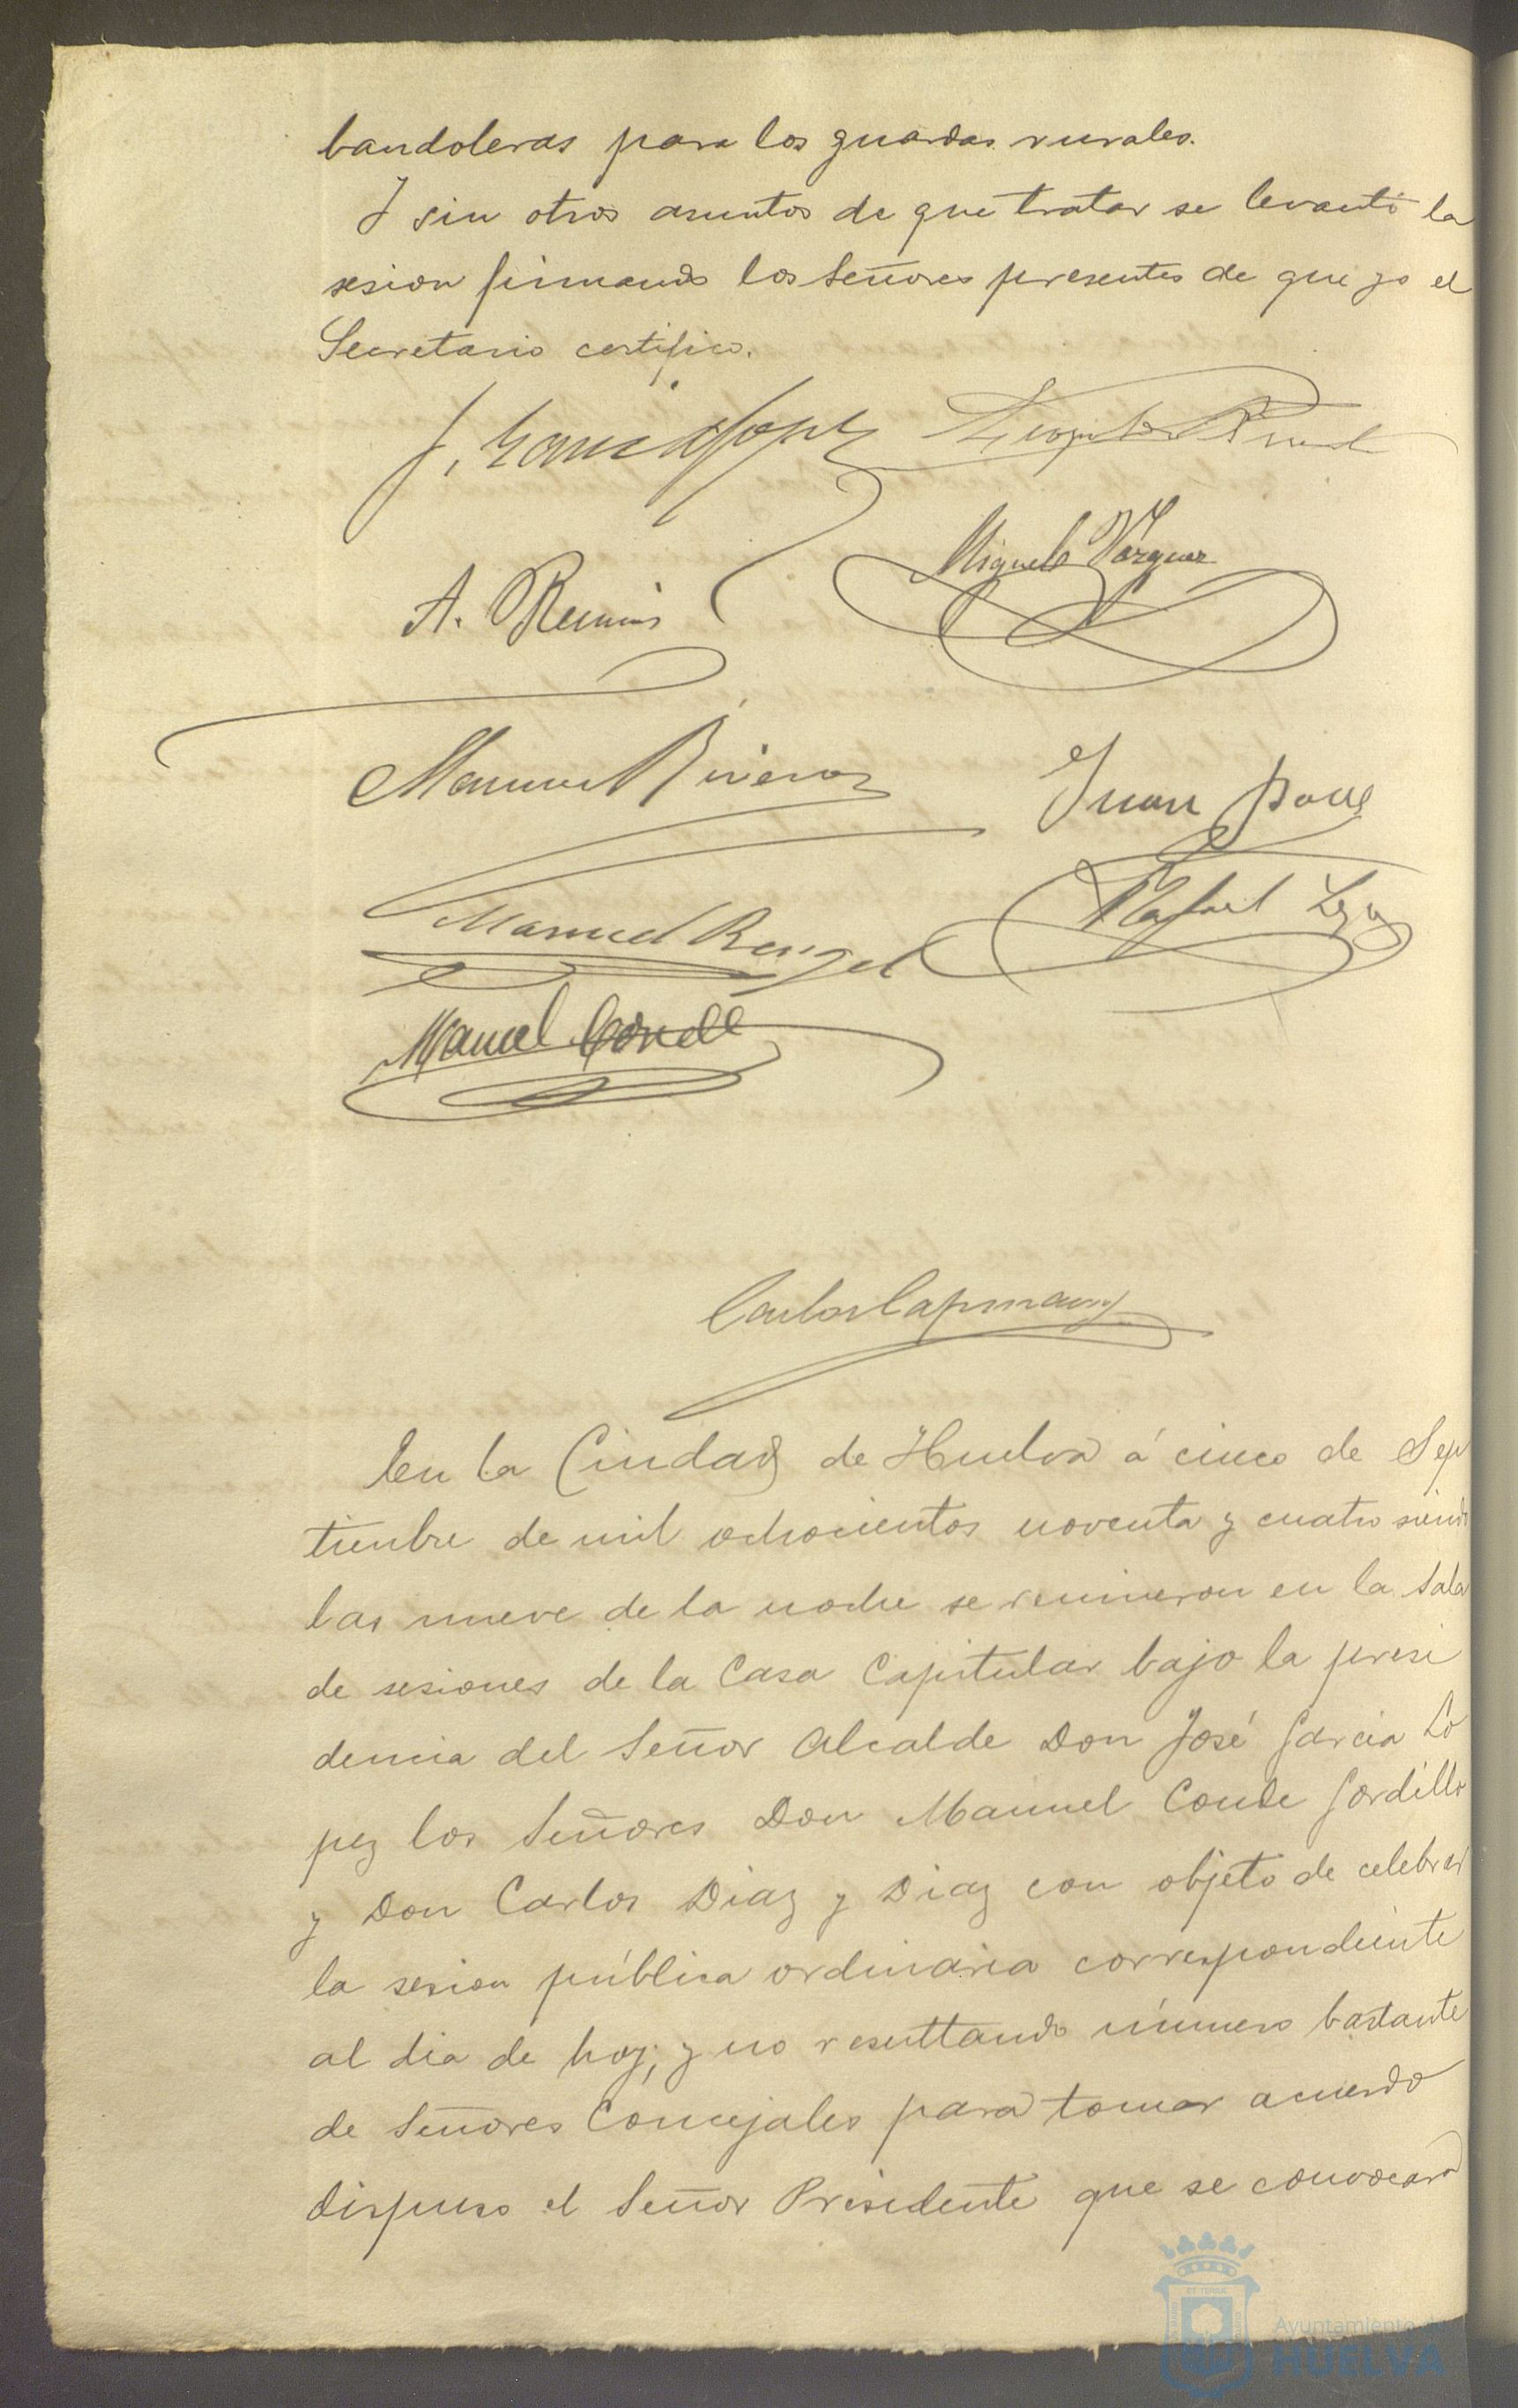 bandoleras para los guardas rurales.
Y sin otros asuntos de que tratar se levantó la
sesion firmando los Señores presentes de que yo el
Secretario certifico.
J. Garcia Lopez
A. Ramirez
Miguel Vázquez
Manuel
Juan
Manuel Rengel
Rafael
Manuel Conde
Carlos Capmany
En la Ciudad de Huelva á cinco de Sep
tiembre de mil ochocientos noventa y cuatro siendo
las nueve de la noche se reunieron en la Sala
de sesiones de la Casa Capitular bajo la presi
dencia del Señor Alcalde Don José Garcia Lo
pez los Señores Don Manuel Conde Gordillo
y Don Carlos Diaz y Diaz con objeto de celebrar
la sesion pública ordinaria correspondiente
al dia de hoy; y no resultando número bastante
de Señores Concejales para tomar acuerdo
dispuso el Señor Presidente que se convocara
Ayuntamiento de
HUELVA